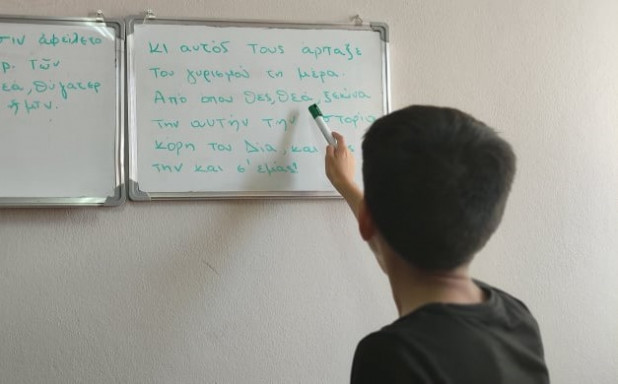 τιν ἀφείλετο
ρ. τῶν
εά, θύγατερ
ἡμῖν.
κι αυτός τους αρπαξε
του γυρισμού τη μερα.
Από οπου θες, θεά, ξεκινα
την αυτήν την στορία
κορη του Δία, και
την και σ' εμάς!